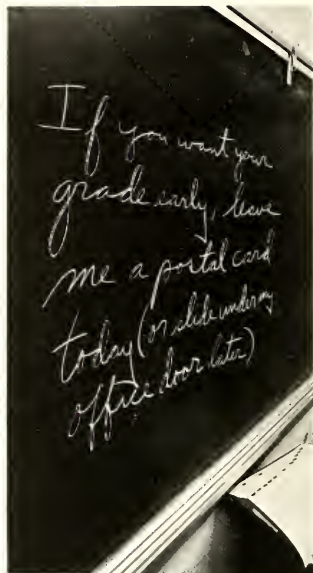 If you want your
grade early, leave
me a postal card
today (or slide under my
office door later)